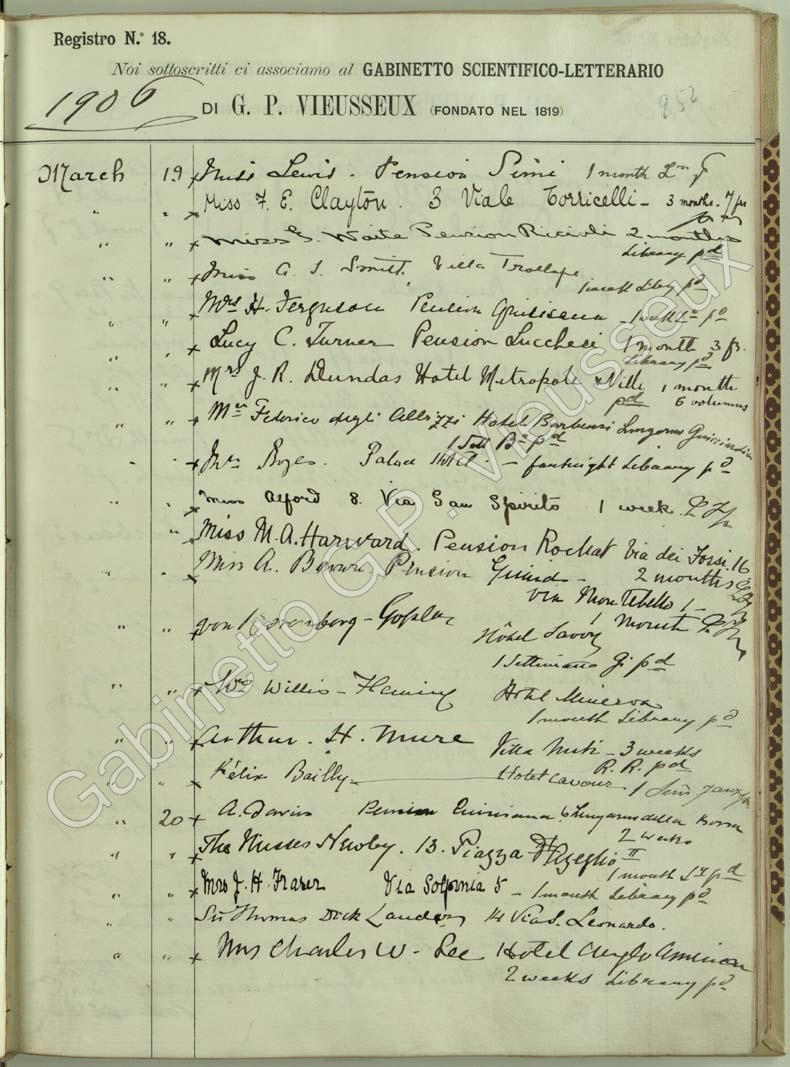 Registro N.º 18.
Noi sottoscritti ci associamo al GABINETTO SCIENTIFICO-LETTERARIO
1906 DI G. P. VIEUSSEUX (FONDATO NEL 1819) 952
March 19 x Miss Lewis. Pension Simi 1 month
" " x Miss F. E. Clayton. 3 Viale Torricelli - 3 months. 7 frs
" " x Miss G. Waite Pension Riccioli 2 months
Library pd
" " x Miss A. S. Smith, Villa Trollope
1 month Lby pd
" " x Mrs H. Ferguson Pension Quisisana - 1 week pd
" " x Lucy C. Turner Pension Lucchesi 1 month 3 fr.
Library pd
" " x Mrs J. R. Dundas Hotel Metropole & Ville 1 month
pd 6 volumes
" " x Federico degli Hotel Lungarno Guicciardini
pd
" " x Mrs Palace Hotel - fortnight Library pd
" " x Miss Alford 8. Via San Spirito 1 week
" " x Miss M. A. Harward. Pension Rochat Via dei Fossi. 16
2 months
" " x Miss A. Pension
Via Montebello 1 -
1 Month
" " x von Hôtel Savoy
1 Settimana G. pd
" " x Willis-Fleming Hotel Minerva
1 month Library pd
" " x Arthur. H. Mure Villa - 3 weeks
R. R. pd
" " x Félix Bailly Hotel Cavour 1
" 20 x A. Davis Pension Quisisana 6 Lungarno della Borsa
2 weeks
" " x The Misses Newby. 13. Piazza D'Azeglio II
1 month pd
" " x Mrs J. H. Fraser Via Solferino 5 - 1 month Library pd
" " Sir Thomas Dick Lauder 14 Via S. Leonardo.
" " x Mrs Charles W. Lee Hotel Anglo American
2 weeks Library pd
Gabinetto G.P. Vieusseux